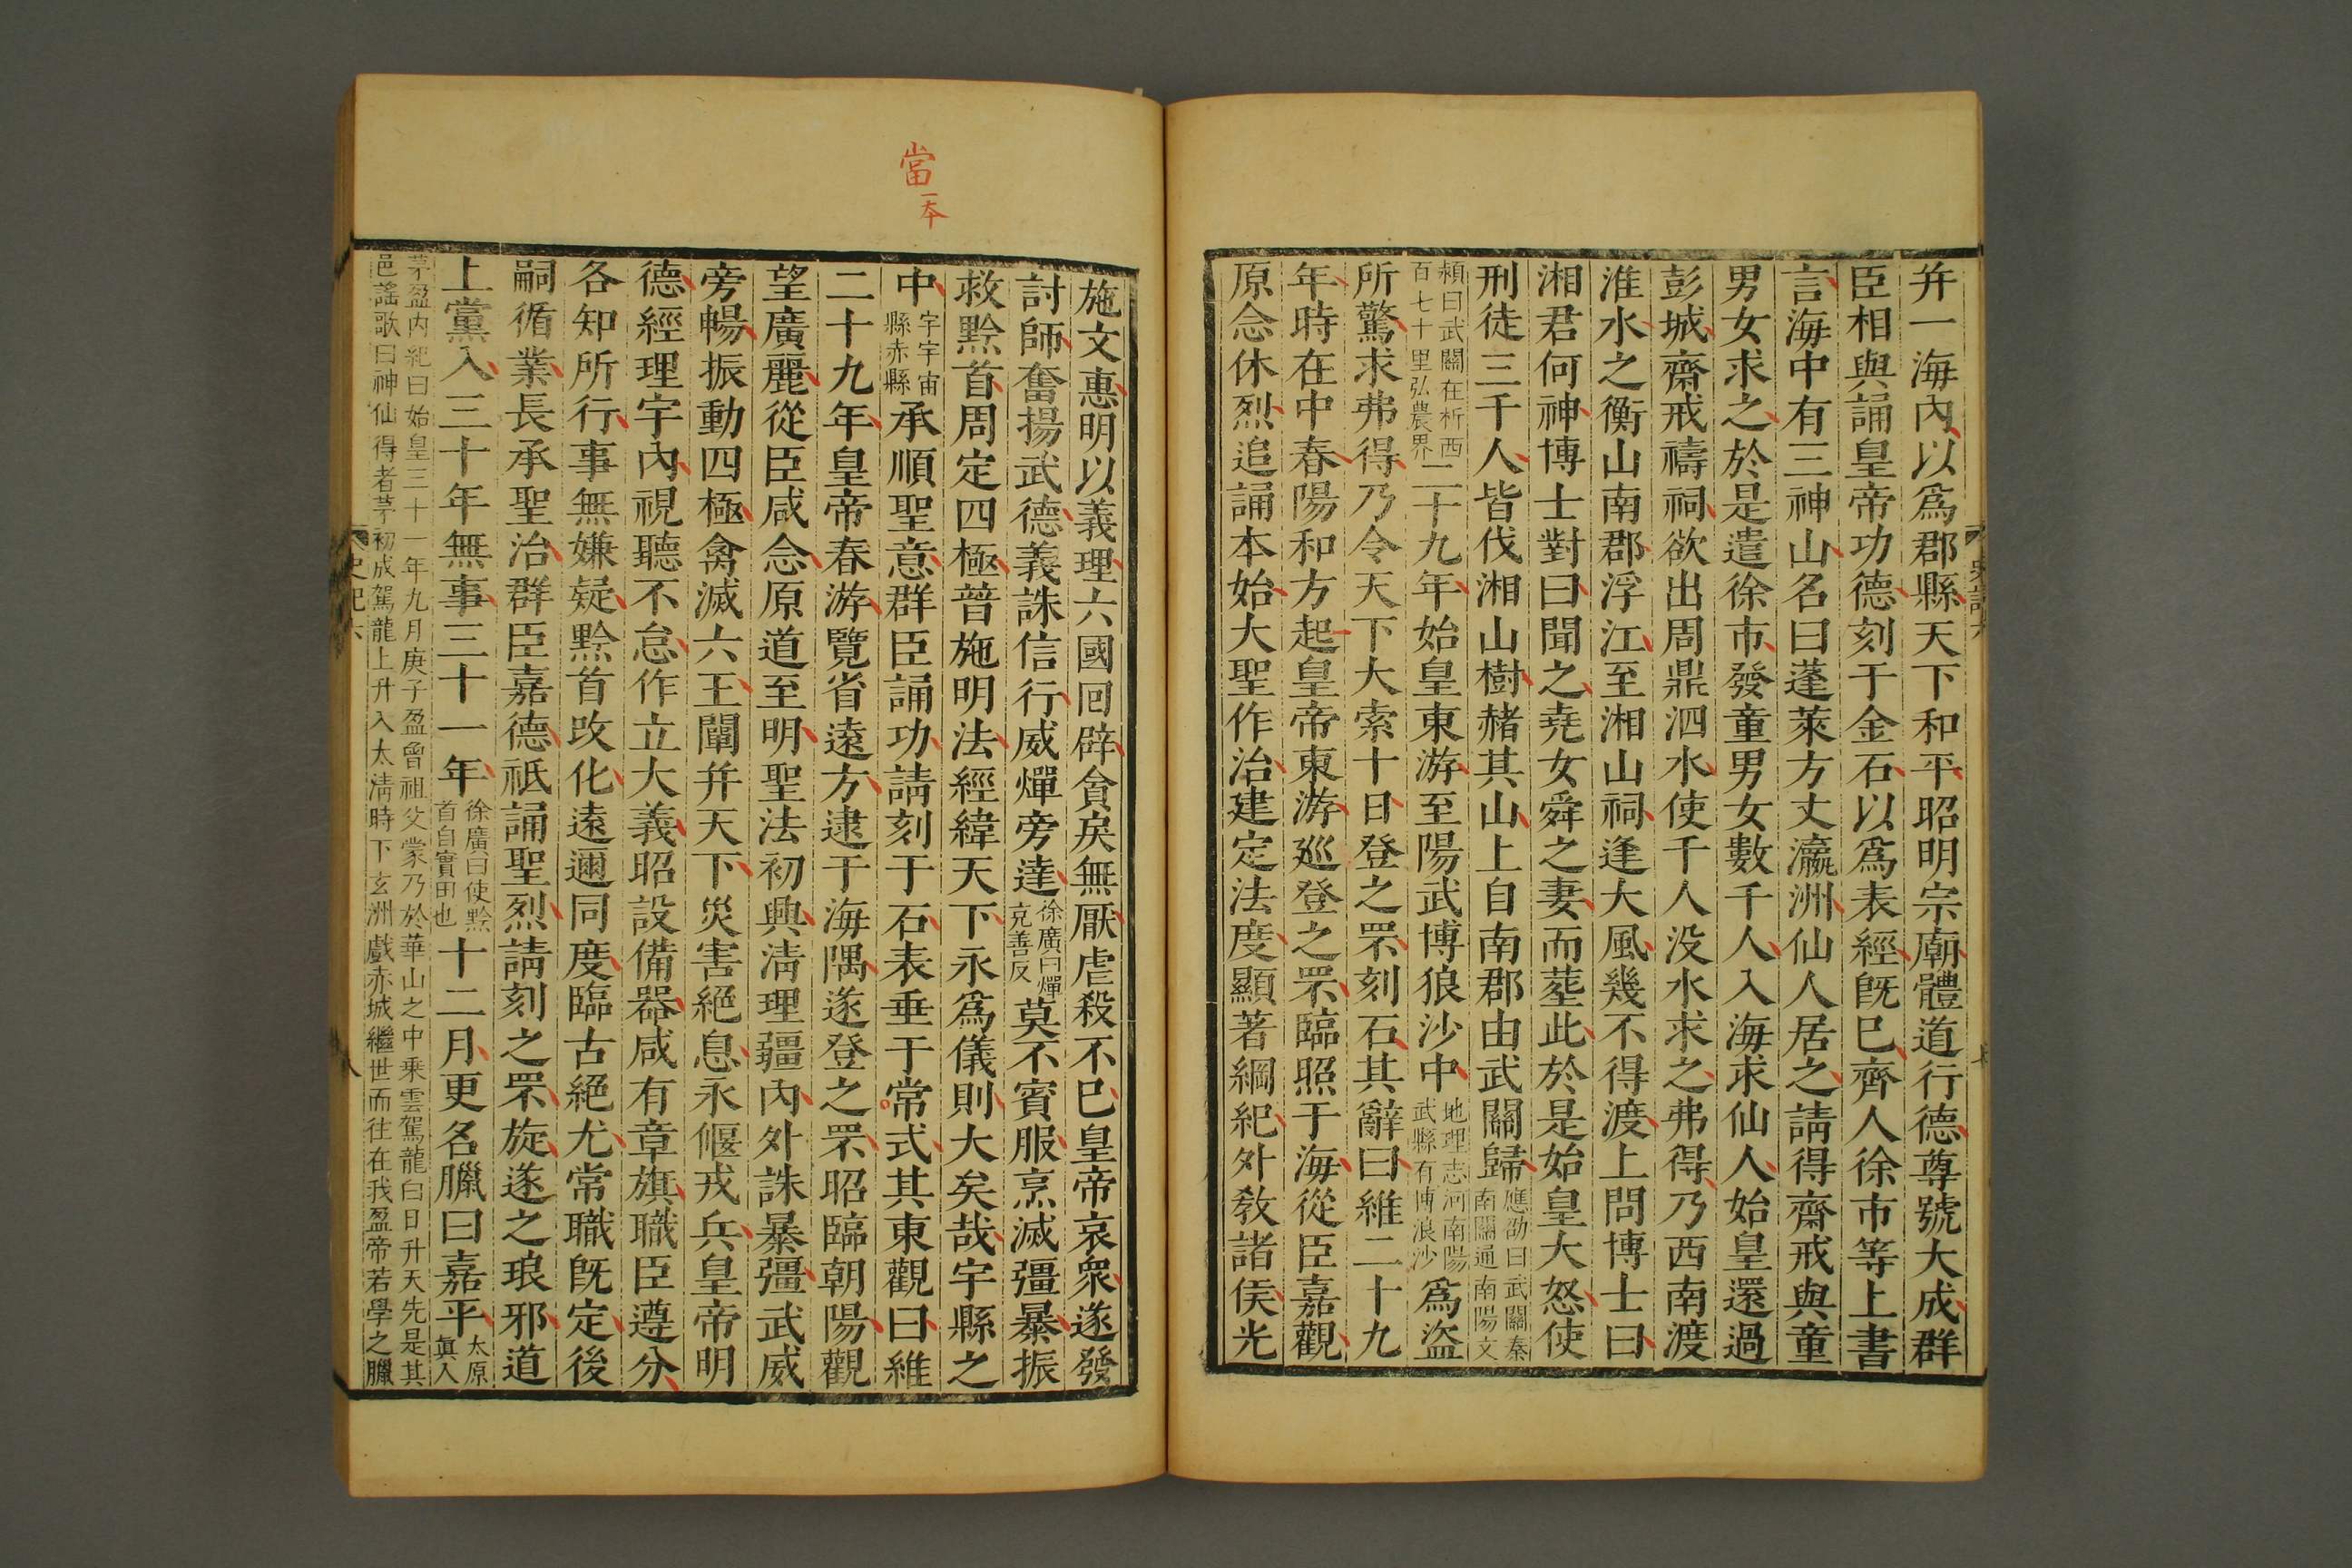 并一海內以爲郡縣天下和平昭明宗廟體道行德尊號大成群
臣相與誦皇帝功德刻于金石以爲表經旣已齊人徐市等上書
言海中有三神山名曰蓬萊方丈瀛洲仙人居之請得齋戒與童
男女求之於是遣徐市發童男女數千人入海求仙人始皇還過
彭城齋戒禱祠欲出周鼎泗水使千人没水求之弗得乃西南渡
淮水之衡山南郡浮江至湘山祠逢大風幾不得渡上問博士曰
湘君何神博士對曰聞之堯女舜之妻而葬此於是始皇大怒使
刑徒三千人皆伐湘山樹赭其山上自南郡由武關歸應劭曰武關秦南關通南陽文
頴曰武關在析西百七十里弘農界二十九年始皇東游至陽武博狼沙中地理志河南陽武縣有博浪沙爲盜
所驚求弗得乃令天下大索十日登之罘刻石其辭曰維二十九
年時在中春陽和方起皇帝東游巡登之罘臨照于海從臣嘉觀
原念休烈追誦本始大聖作治建定法度顯著綱紀外敎諸侯光
施文惠明以義理六國回辟貪戾無厭虐殺不已皇帝哀衆遂發
討師奮揚武德義誅信行威燀旁達徐廣曰燀充善反莫不賓服烹滅彊暴振
救黔首周定四極普施明法經緯天下永爲儀則大矣哉宇縣之
中宇宇宙縣赤縣承順聖意群臣誦功請刻于石表垂于常式其東觀曰維
二十九年皇帝春游覽省遠方逮于海隅遂登之罘昭臨朝陽觀
望廣麗從臣咸念原道至明聖法初興淸理疆內外誅暴彊武威
旁暢振動四極禽滅六王闡并天下災害絕息永偃戎兵皇帝明
德經理宇內視聽不怠作立大義昭設備器咸有章旗職臣遵分
各知所行事無嫌疑黔首改化遠邇同度臨古絕尤常職旣定後
嗣循業長承聖治群臣嘉德祗誦聖烈請刻之罘旋遂之琅邪道
上黨入三十年無事三十一年徐廣曰使黔首自實田也十二月更名臘曰嘉平太原眞人
茅盈內紀曰始皇三十一年九月庚子盈曾祖父濛乃於華山之中乘雲駕龍白日升天先是其
邑謠歌曰神仙得者茅初成駕龍上升入太淸時下玄洲戲赤城繼世而往在我盈帝若學之臘
當一本
史記六